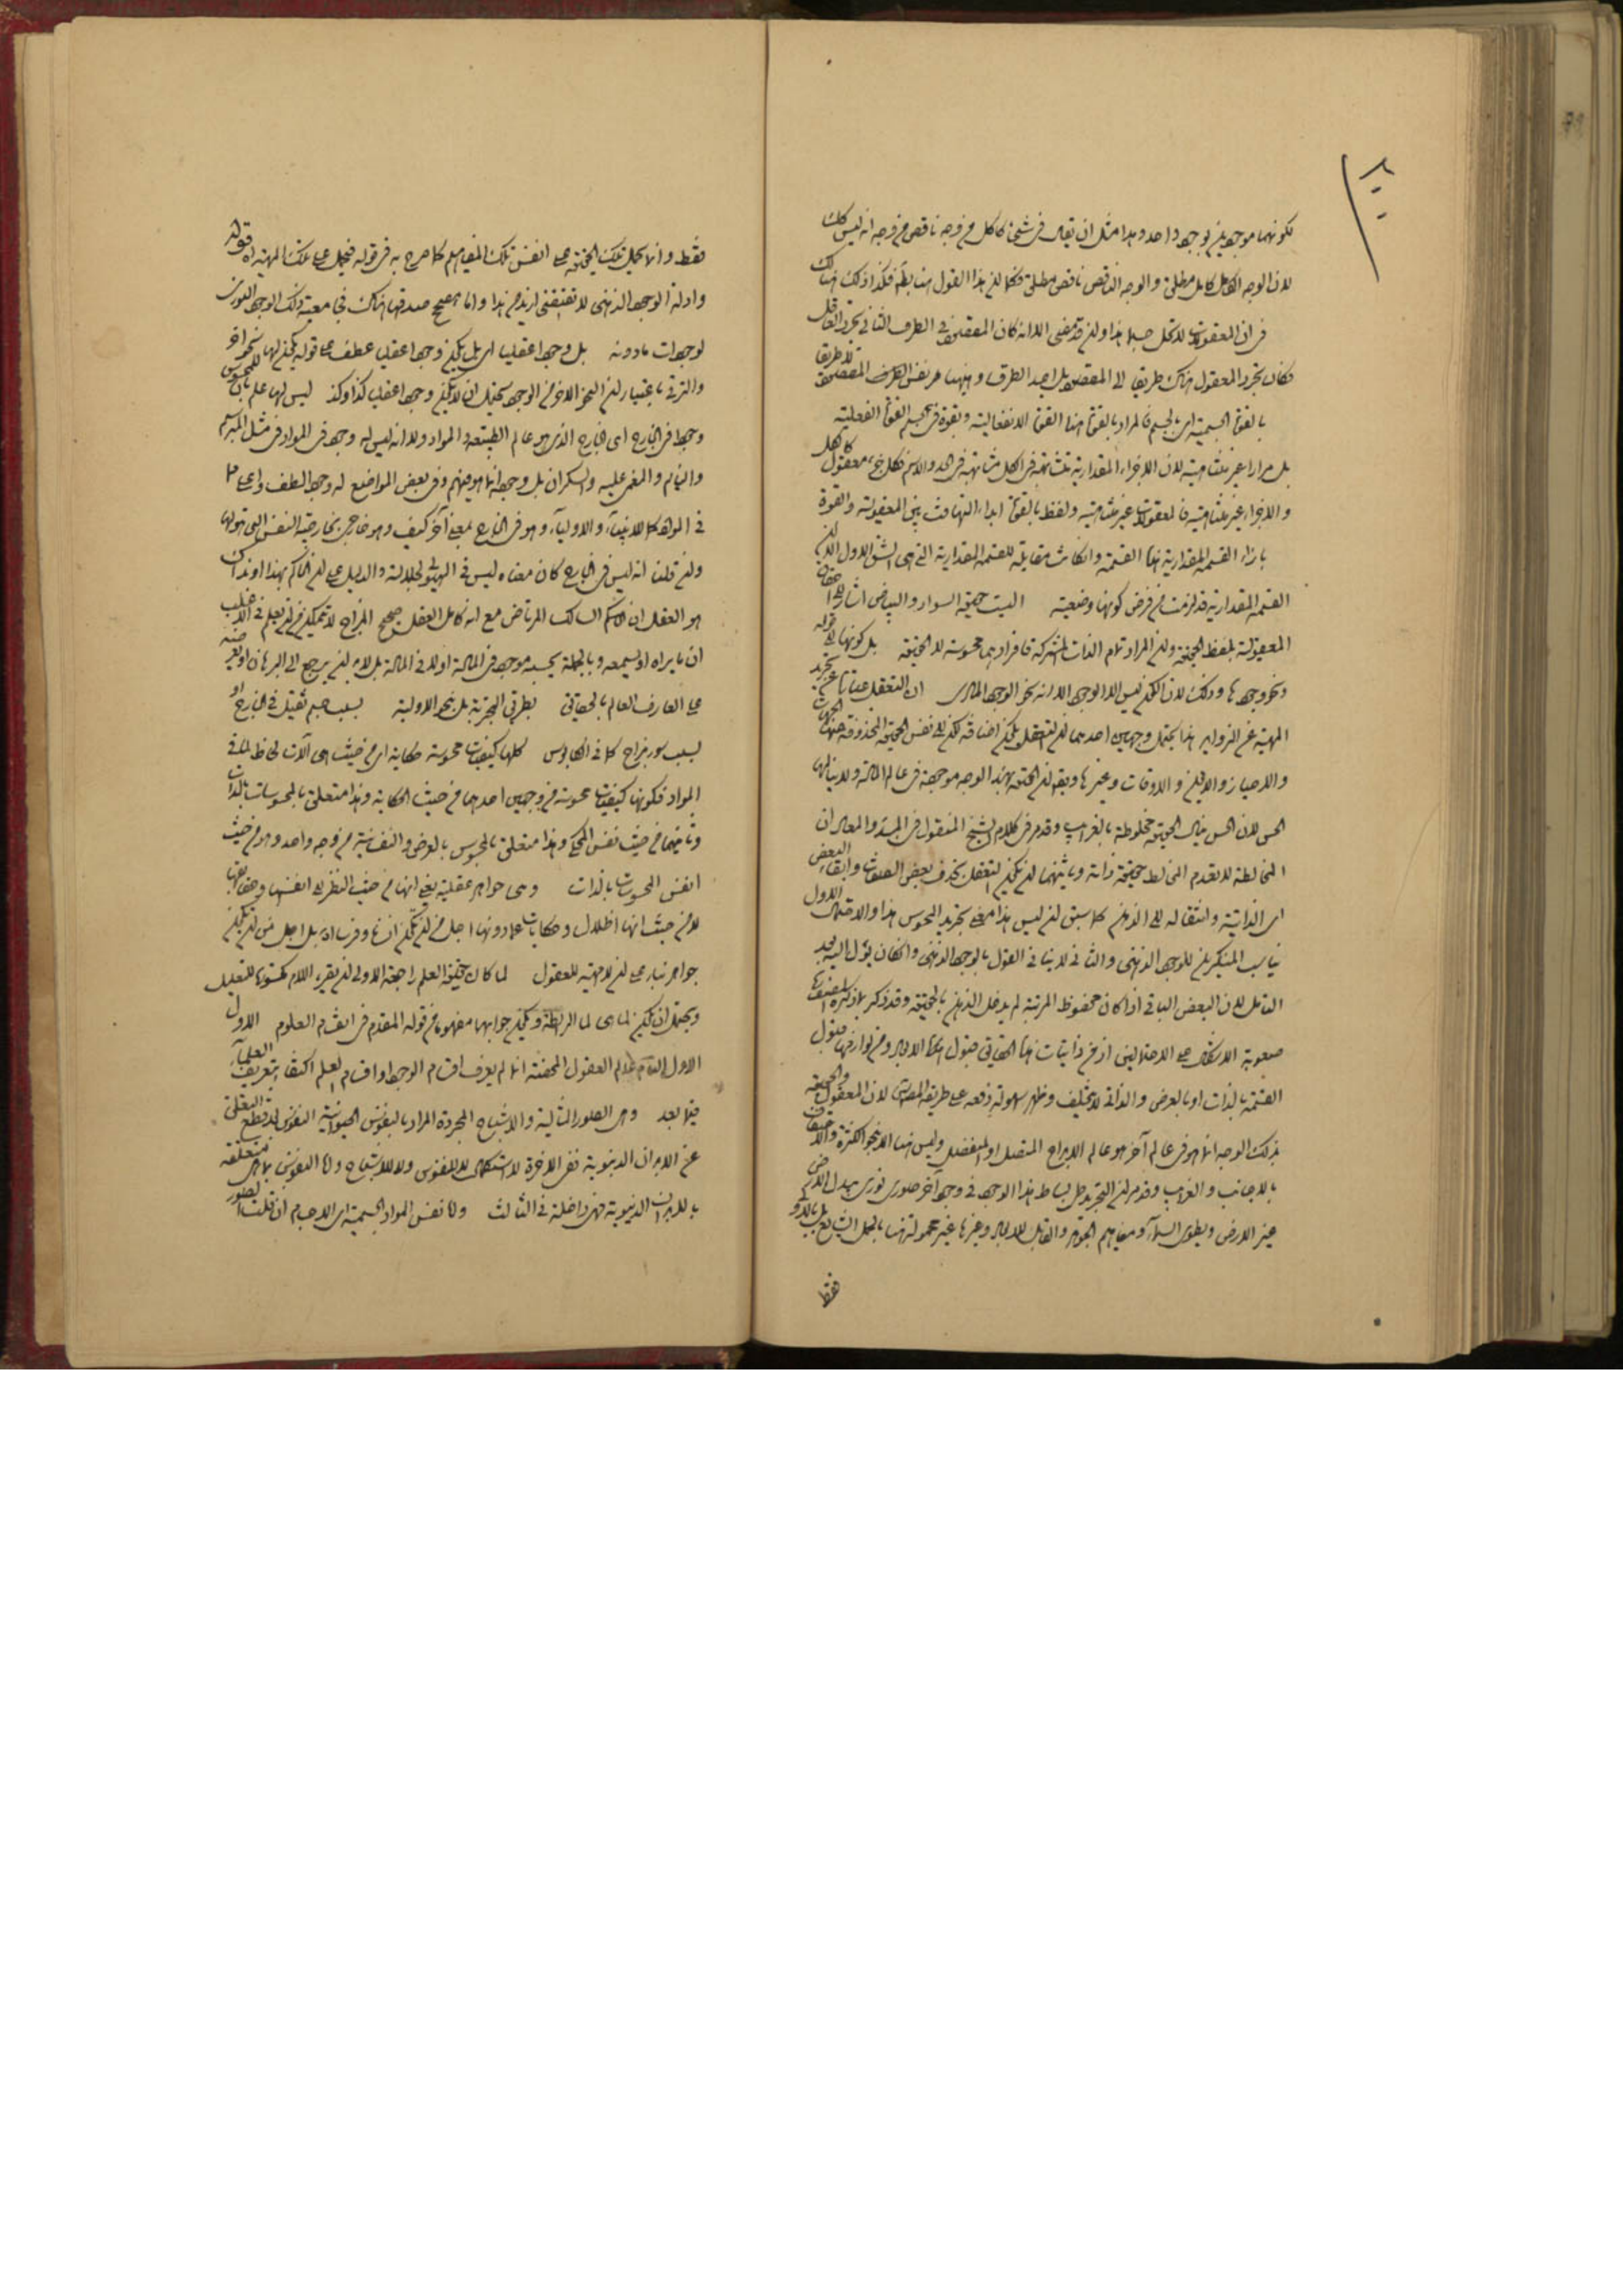 لكونهما موجودين بوجود واحد وهذا مثل ان يقال فى شئ كامل من وجه ناقص من وجه انه ليس كذلك
لان الوجه الكامل كامل مطلق والوجه الناقص ناقص مطلق فكما ان هذا القول هنا باطل فكذا ذلك هناك
فى ان المعقولات لا تحل جسما هذا وان قد مضى الا انه كان المقصود فى الطرف الثانى تجرد العاقل
فكان تجرد المعقول هناك طريقا الى المقصود بل احد الطرق وهيهنا هو نفس الطرف المقصود لا طريقا
بالقوة الجسمية اى بالجسم فالمراد بالقوة هنا القوة الانفعالية وبقوة فى جسم القوة الفعلية
بل مرارا غير متناهية لان الاجزاء المقدارية متشابهة فى الكل مشابهة فى الحد والاسم فكل جزء معقول كالكل
والاجزاء غير متناهية فالمعقولات غير متناهية ولفظ بالقوة ابداء التهافت بين المعقولية والقوة
بازاء القسمة المقدارية هذا القسمة وان كانت مقابلة للقسمة المقدارية التى هى الشق الاول لكن
القسمة المقدارية قد لزمت من فرض كونها وضعية اليست حقيقة السواد والبياض اشار الى
المعقولة بلفظ الحقيقة وان المراد تمام الذات المشتركة فافرادهما محسوسة لا الحقيقة بل كونها الى قوله
ونحو وجودها وذلك لان الكون ليس الا الوجود الا انه نحو الوجود المادى ان التعقل عبارة عن تجريد
المهية عن الزوايد هذا يحتمل وجهين احدهما ان التعقل يكون اضافة لكن الى نفس الحقيقة المحذوفة عنها الجهات
والاحياز والاين والاوقات وغيرها ويقول ان الحقيقة بهذا الوجه موجودة فى عالم المادة ولا ينالها
الحس لان الحس ينال الحقيقة مخلوطة بالغرايب وقد مر فى كلام الشيخ المنقول فى المبدء والمعاد ان
المخالطة لا تعدم المخالط حقيقة ذاته وثانيهما ان يكون التعقل بحذف بعض الصفات وابقاء البعض
اى الذاتية وانتقاله الى الذهن كما سبق ان ليس هذا معنى تجريد المحسوس هذا والاحتمال الاول
يناسب المنكرين للوجود الذهنى والثانى لا ينافى القول بالوجود الذهنى وان كان يؤل اليه بعد
التامل لان البعض الباقى اذا كان محفوظ المرتبة لم يدخل الذهن بالحقيقة وقد ذكر
صعوبة الاشكال على الاحتمالين اذ من ذاتيات هذه الحقائق قبول الابعاد ومن لوازمها قبول
القسمة بالذات او بالعرض والذاتى لا يتخلف وظهر سهولة دفعه على طريقة المصنف لان المعقول والحقيقة
بذلك الوجه انما هو فى عالم آخر هو عالم الابداع المتصل او المنفصل وليس هنا الا نحو الكثرة والاختفاف
بالاجانب والغرايب وقد مر ان التجريد حل بساط هذا الوجود فى وجود آخر صورى نورى يبدل الارض
غير الارض ويطوى السماء ومفاهيم الجوهر والقابل للابعاد وغيرها غير محمولة هنا بالحمل الشايع بل بالاولى
فقط
فقط وانما يحمل تلك الحقيقة على انفس تلك المفاهيم كما صرح به فى قوله فيحمل على تلك المهية اه قوله
وادلة الوجود الذهنى لا تقتضى ازيد من هذا واما مصحح صدقها هناك فى معية ذلك الوجود النورى
لوجودات مادونه بل وجودا عقليا اى بل يكون وجودا عقليا عطف على قوله يكون لها نحو آخر
والترقى باعتبار ان النحو الاخر من الوجود يحتمل ان لا يكون وجودا عقليا كذا وكذا ليس لها علم بان للمحسوس
وجودا فى الخارج اى الخارج الذى هو عالم الطبيعة والمواد ولا انه ليس له وجود فى المواد فى مثل المبرسم
والنايم والمغمى عليه والسكران بل وجود انما هو فيهم وفى بعض المواضع له وجود الطف واعلى مما
فى المواد كما للانبياء والاولياء وهو فى الخارج بمعنى آخر كيف وهو خارج بخارجية النفس التى هو لها
وان قلنا انه ليس فى الخارج كان معناه ليس فى الهيولى لجلالته والدليل على ان الحاكم بهذا او ذاك
هو العقل ان الحكيم السالك المرتاض مع انه كامل العقل صحيح المزاج لا يتمكن من ان يعلم فى الاغلب
ان ما يراه او يسمعه وبالجملة يحسه موجود فى المادة او لا فى المادة بل لا بد ان يرجع الى البرهان او يعرضه
على العارف العالم بالحقايق بطريق التجربة بل بنحو الاولية بسبب جسم ثقيل فى الخارج او
بسبب سوء مزاج كما فى الكابوس كلها كيفيات محسوسة حكاية اى من حيث هى آلات لحاظ لما فى
المواد فكونها كيفيات محسوسة من وجهين احدهما من حيث الحكاية وهذا متعلق بالمحسوسات بالذات
وثانيهما من حيث نفس المحكى وهذا متعلق بالمحسوس بالعرض والنفسانية من وجه واحد وهو من حيث
انفس المحسوسات بالذات وهى جواهر عقلية يعنى انها من حيث النظر الى انفسها وحقايقها
لا من حيث انها اظلال وحكايات عما دونها اجل من ان تكون انسانا وفرسا اه بل اجل من ان تكون
جواهر بناء على ان لا مهية للعقول لما كان حقيقة العلم راجعة الاولى ان يقرء اللام مكسورة للتعليل
ويحتمل ان يكون لما هى لما الرابطة ويكون جوابها مفهوما من قوله المقدم فى اقسام العلوم الاول
الاول التام علم العقول المحضة انما لم يعرف اقسام الوجود او اقسام العلم اكتفاء بتعريف العلماء
فيما بعد وهى الصور المثالية والاشباح المجردة المراد بالنفوس الحيوانية النفوس
عن الابدان الدنيوية ففى الاخرة لا استكمال لا للنفوس ولا للاشباح واما النفوس بما هى متعلقة
بالابدان الدنيوية فهى داخلة فى الثالث واما نفس المواد الجسمية اى الاجسام ان قلت الصور